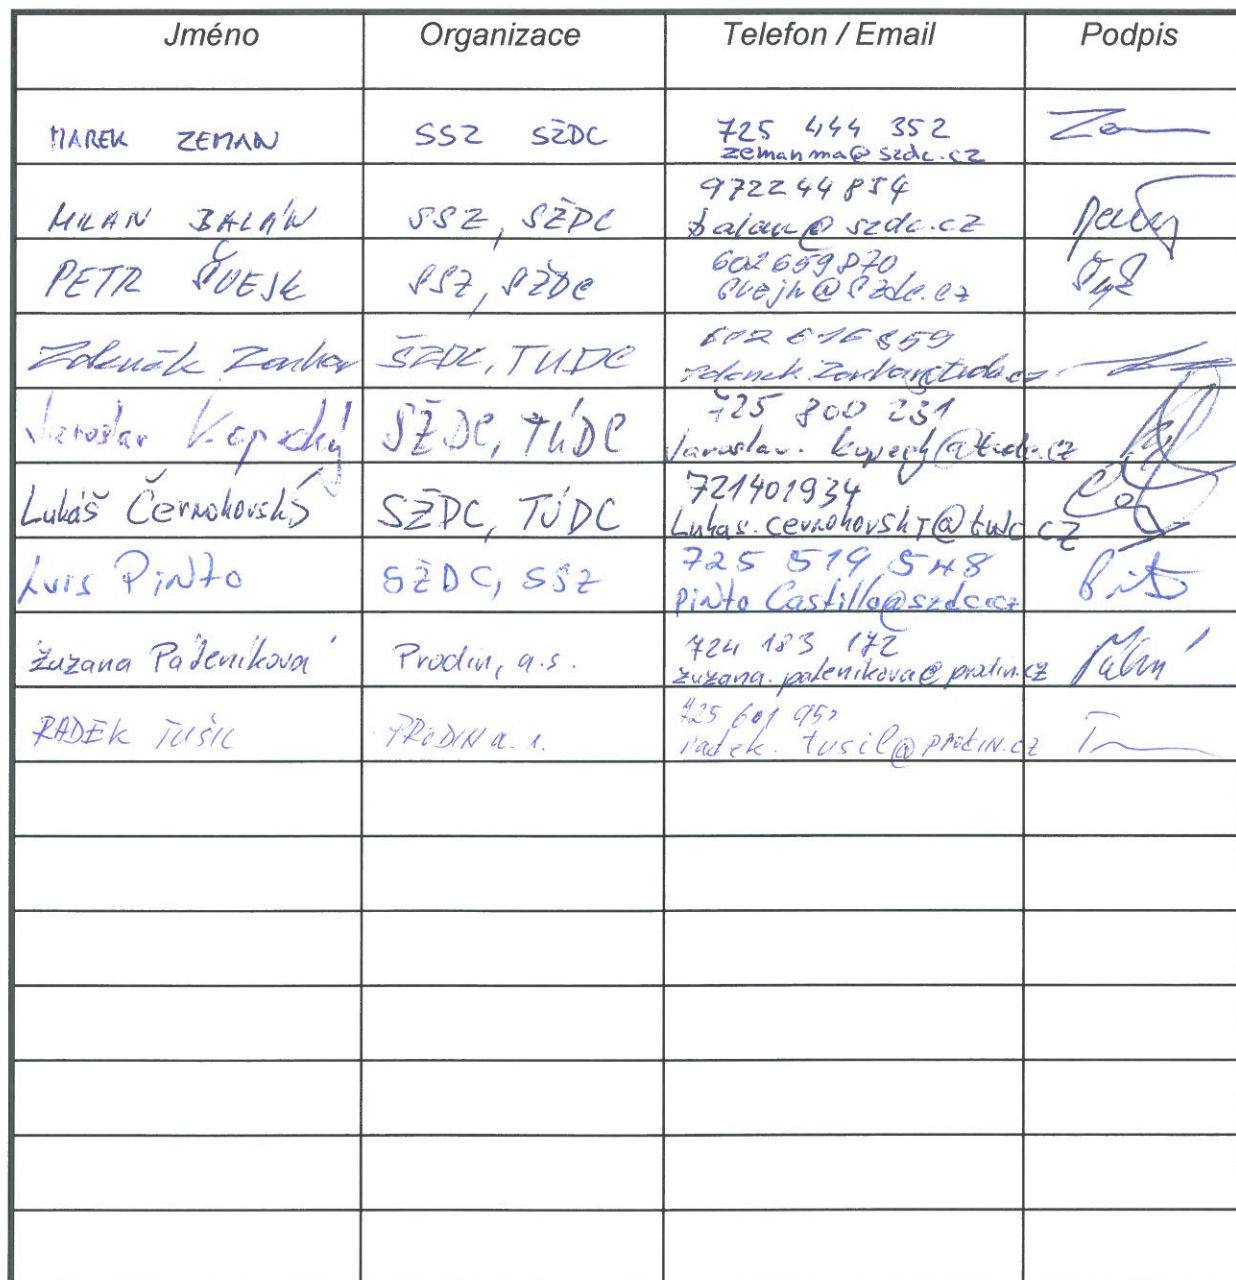 Jméno Organizace Telefon / Email Podpis
MAREK ZEMAN SSZ SŽDC 725 444 352
zemanma@szdc.cz
MILAN BALÁN SSZ, SŽDC 972244854
balan@szdc.cz
PETR ŠVEJK SSZ, SŽDC 602659870
@szdc.cz
Zdeněk SŽDC, TÚDC 602 616 859
Jaroslav Kopecký SŽDC, TÚDC 725 800 231
Jaroslav.kopecky@tudc.cz
Lukáš Černohorský SŽDC, TÚDC 721401934
Lukas.cernohorsky@tudc.cz
Luis Pinto SŽDC, SSZ 725 519 548
Pinto Castillo@szdc.cz
Zuzana Patenikova Prodin, a.s. 724 183 172
zuzana.patenikova@prodin.cz
RADEK TUŠIL PRODIN a.s. 725 601
radek.tusil@prodin.cz